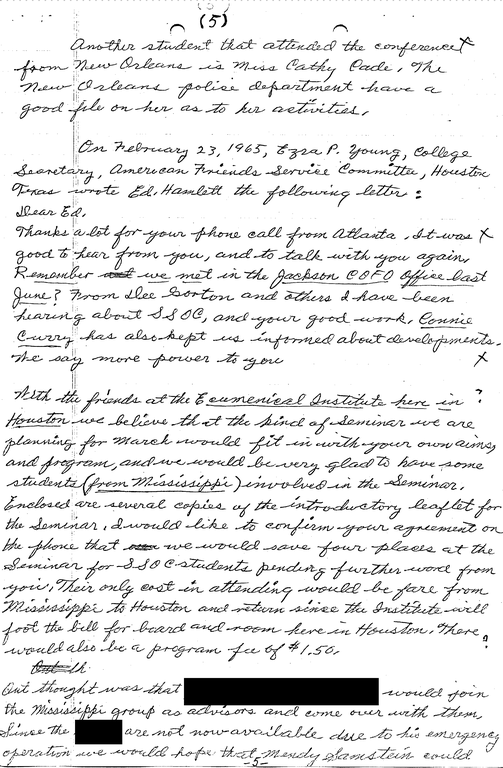 (5)
Another student that attended the conference X
from New Orleans is Miss Cathy Cade. The
New Orleans police department have a
good file on her as to her activities.
On February 23, 1965, Ezra P. Young, College
Secretary, American Friends Service Committee, Houston
Texas wrote Ed. Hamlett the following letter:
Dear Ed,
Thanks a lot for your phone call from Atlanta. It was X
good to hear from you, and to talk with you again.
Remember we met in the Jackson COFO Office last
June? From Dee Gorton and others I have been
hearing about SSOC, and your good work. Connie
Curry has also kept us informed about developments.
We say more power to you X
With the friends at the Ecumenical Institute here in ?
Houston we believe that the kind of Seminar we are
planning for March would fit in with your own aims,
and program, and we would be very glad to have some
students (from Mississippi) involved in the Seminar.
Enclosed are several copies of the introductory leaflet for
the Seminar. I would like to confirm your agreement on
the phone that we would save four places at the
Seminar for SSOC students pending further word from
you. Their only cost in attending would be fare from
Mississippi to Houston and return since the Institute will
foot the bill for board and room here in Houston. There ?
would also be a program fee of $1.50.
Out thought was that would join
the Mississippi group as advisors and come over with them.
Since the are not now available due to his emergency
operation we would hope that Mendy Samstein could
-5-